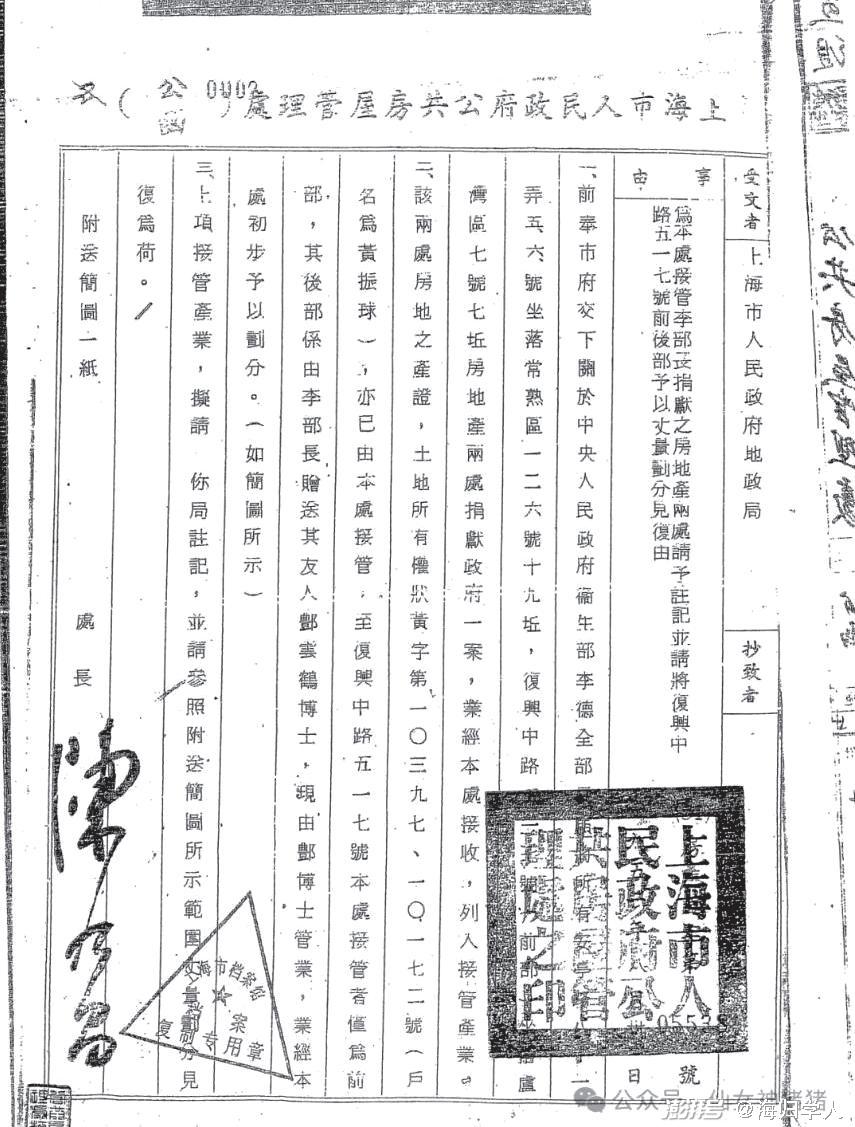 上海市人民政府公共房屋管理處（公函）
0002
受文者
上海市人民政府地政局
抄致者
事由
爲本處接管李部長捐獻之房地產兩處請予註記並請將復興中
路五一七號前後部予以丈量劃分見復由
號
日
05538
一、前奉市府交下關於中央人民政府衞生部李德全部
弄五、六號坐落常熟區一二六號十九坵，復興中路
灣區七號七坵房地產兩處捐獻政府一案，業經本處接收，列入接管產業。
二、該兩處房地之產證，土地所有權狀黃字第一〇三九七、一〇一七二號（戶
名爲黃振球），亦已由本處接管，至復興中路五一七號本處接管者僅爲前
部，其後部係由李部長贈送其友人酆雲鶴博士，現由酆博士管業，業經本
處初步予以劃分。（如簡圖所示）
三、上項接管產業，擬請 你局註記，並請參照附送簡圖所示範圍丈量劃分見
復爲荷。
附送簡圖一紙
處長
上海市人
民政府公
共房屋管
理處之印
海市档案馆
复制专用章
公众号
仙女神猪猪
澎湃号 @海归学人